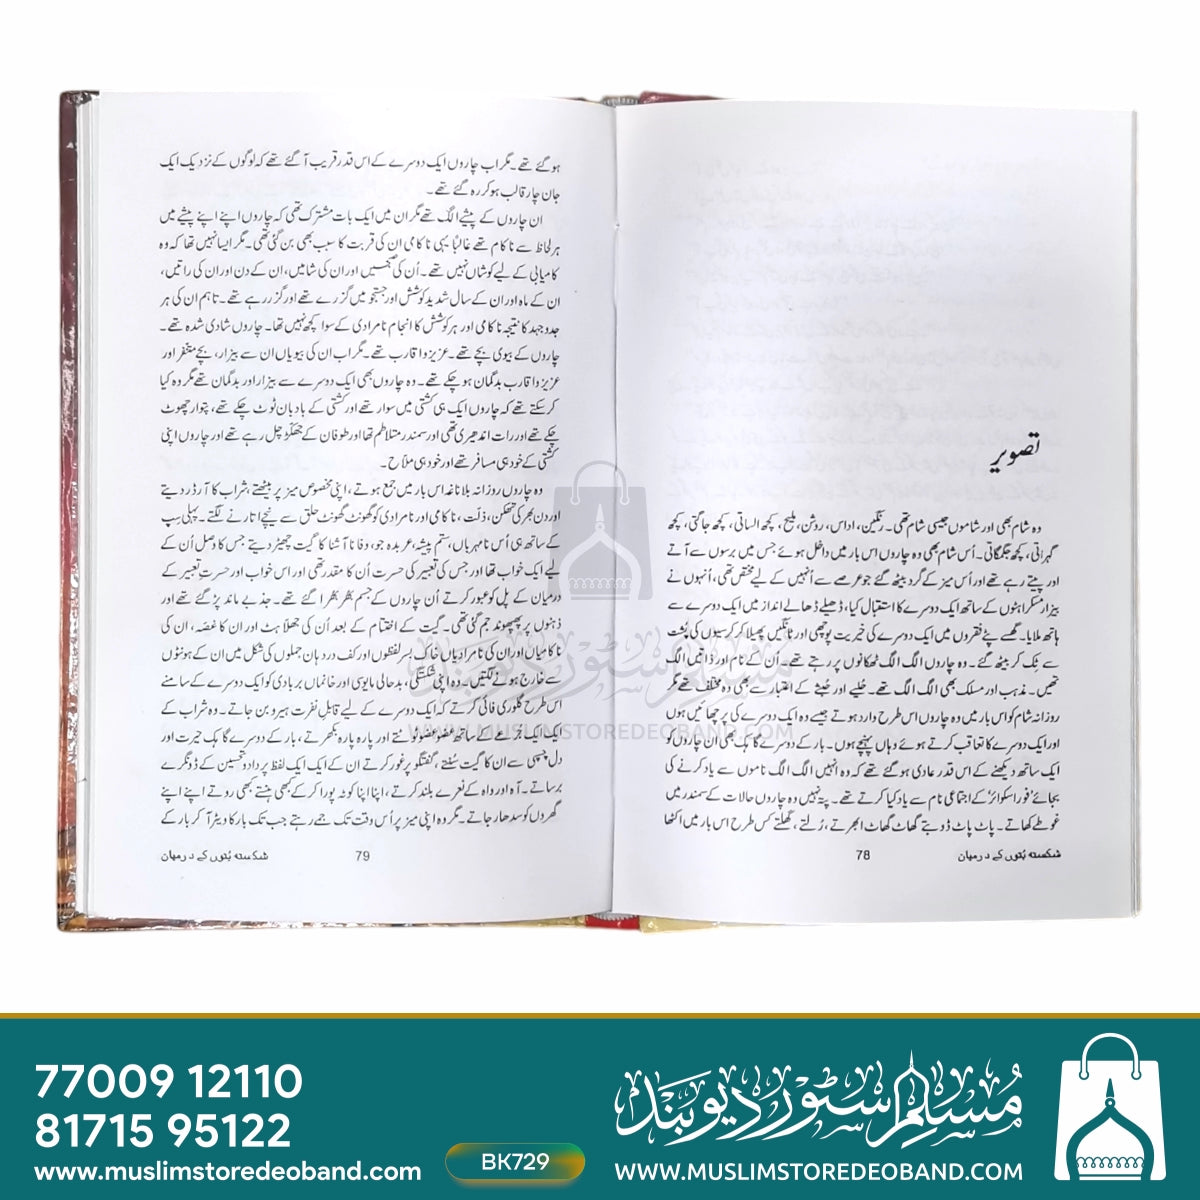 تصویر
وہ شام بھی اور شاموں جیسی شام تھی۔ رنگین، اداس، روشن، ملیح، کچھ السائی، کچھ جاگتی، کچھ
گہراتی، کچھ جگمگاتی۔ اُس شام بھی وہ چاروں اس بار میں داخل ہوئے جس میں برسوں سے آتے
اور پیتے رہے تھے اور اُس میز کے گرد بیٹھ گئے جو عرصے سے اُنہیں کے لیے مختص تھی، اُنہوں نے
بیزار مسکراہٹوں کے ساتھ ایک دوسرے کا استقبال کیا، ڈھیلے ڈھالے انداز میں ایک دوسرے سے
ہاتھ ملایا۔ گھسے پٹے فقروں میں ایک دوسرے کی خیریت پوچھی اور ٹانگیں پھیلا کر کرسیوں کی پُشت
سے ٹِک کر بیٹھ گئے۔ وہ چاروں الگ الگ ٹھکانوں پر رہتے تھے۔ اُن کے نام اور ذاتیں الگ
تھیں۔ مذہب اور مسلک بھی الگ الگ تھے۔ حُلیے اور جُثے کے اعتبار سے بھی وہ مختلف تھے مگر
روزانہ شام کو اس بار میں وہ چاروں اس طرح وارد ہوتے جیسے وہ ایک دوسرے کی پرچھائیں ہوں
اور ایک دوسرے کا تعاقب کرتے ہوئے وہاں پہنچے ہوں۔ بار کے دوسرے گاہک بھی ان چاروں کو
ایک ساتھ دیکھنے کے اس قدر عادی ہو گئے تھے کہ وہ انہیں الگ الگ ناموں سے یاد کرنے کی
بجائے 'فور اسکوائر' کے اجتماعی نام سے یاد کیا کرتے تھے۔ پتہ نہیں وہ چاروں حالات کے سمندر میں
غوطے کھاتے۔ پاٹ پاٹ ڈوبتے گھاٹ گھاٹ ابھرتے، رُلتے، گھلتے کس طرح اس بار میں اکٹھا
شکستہ بُتوں کے درمیان 78
ہو گئے تھے۔ مگر اب چاروں ایک دوسرے کے اس قدر قریب آ گئے تھے کہ لوگوں کے نزدیک ایک
جان چار قالب ہو کر رہ گئے تھے۔
ان چاروں کے پیشے الگ تھے مگر ان میں ایک بات مشترک تھی کہ چاروں اپنے اپنے پیشے میں
ہر لحاظ سے ناکام تھے غالباً یہی ناکامی ان کی قربت کا سبب بھی بن گئی تھی۔ مگر ایسا نہیں تھا کہ وہ
کامیابی کے لیے کوشاں نہیں تھے۔ اُن کی صبحیں اور ان کی شامیں، ان کے دن اور ان کی راتیں،
ان کے ماہ اور ان کے سال شدید کوشش اور جستجو میں گزرے تھے اور گزر رہے تھے۔ تاہم ان کی ہر
جدوجہد کا نتیجہ ناکامی اور ہر کوشش کا انجام نامرادی کے سوا کچھ نہیں تھا۔ چاروں شادی شدہ تھے۔
چاروں کے بیوی بچے تھے۔ عزیز و اقارب تھے۔ مگر اب ان کی بیویاں ان سے بیزار، بچے متنفر اور
عزیز و اقارب بدگمان ہو چکے تھے۔ وہ چاروں بھی ایک دوسرے سے بیزار اور بدگمان تھے مگر وہ کیا
کر سکتے تھے کہ چاروں ایک ہی کشتی میں سوار تھے اور کشتی کے بادبان ٹوٹ چکے تھے، پتوار چھوٹ
چکے تھے اور رات اندھیری تھی اور سمندر متلاطم تھا اور طوفان کے جھکّڑ چل رہے تھے اور چاروں اپنی
کشتی کے خود ہی مسافر تھے اور خود ہی ملاح۔
وہ چاروں روزانہ بلاناغہ اس بار میں جمع ہوتے، اپنی مخصوص میز پر بیٹھتے، شراب کا آرڈر دیتے
اور دن بھر کی تھکن، ذلّت، ناکامی اور نامرادی کو گھونٹ گھونٹ حلق سے نیچے اتارنے لگتے۔ پہلی سِپ
کے ساتھ ہی اُس نامہرباں، ستم پیشہ، عربدہ جو، وفا ناآشنا کا گیت چھیڑ دیتے جس کا وصل اُن کے
لیے ایک خواب تھا اور جس کی تعبیر کی حسرت اُن کا مقدر تھی اور اس خواب اور حسرتِ تعبیر کے
درمیان کے پل کو عبور کرتے اُن چاروں کے جسم بھُربھُرا گئے تھے۔ جذبے ماند پڑ گئے تھے اور
ذہنوں پر پھپھوند جم گئی تھی۔ گیت کے اختتام کے بعد اُن کی جھلاہٹ اور ان کا غصہ، ان کی
ناکامیاں اور ان کی نامرادیاں خاک بسر لفظوں اور کف در دہان جملوں کی شکل میں ان کے ہونٹوں
سے خارج ہونے لگتیں۔ وہ اپنی شکستگی، بدحالی مایوسی اور خانماں بربادی کو ایک دوسرے کے سامنے
اس طرح گلوری فائی کرتے کہ ایک دوسرے کے لیے قابلِ نفرت ہیرو بن جاتے۔ وہ شراب کے
ایک ایک جُرعے کے ساتھ عضو عضو ٹوٹتے اور پارہ پارہ بکھرتے، بار کے دوسرے گاہک حیرت اور
دل چسپی سے ان کا گیت سُنتے، گفتگو پر غور کرتے ان کے ایک ایک لفظ پر داد و تحسین کے ڈونگرے
برساتے۔ آہ اور واہ کے نعرے بلند کرتے، اپنا اپنا کوٹہ پورا کر کے کبھی ہنستے کبھی روتے اپنے اپنے
گھروں کو سدھار جاتے۔ مگر وہ اپنی میز پر اُس وقت تک جمے رہتے جب تک بار کا ویٹر آ کر بار کے
شکستہ بُتوں کے درمیان 79
مسلم سٹور دیوبند
WWW.MUSLIMSTOREDEOBAND.COM
77009 12110
81715 95122
www.muslimstoredeoband.com
BK729
مسلم سٹور دیوبند
WWW.MUSLIMSTOREDEOBAND.COM